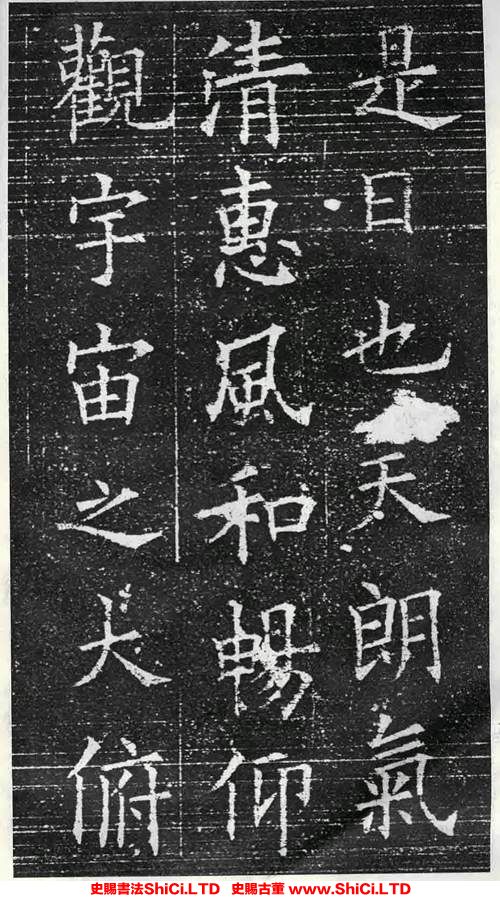 是日也天朗氣
清惠風和暢仰
觀宇宙之大俯
史賜書法ShiCi.LTD 史賜古董 www.ShiCi.LTD